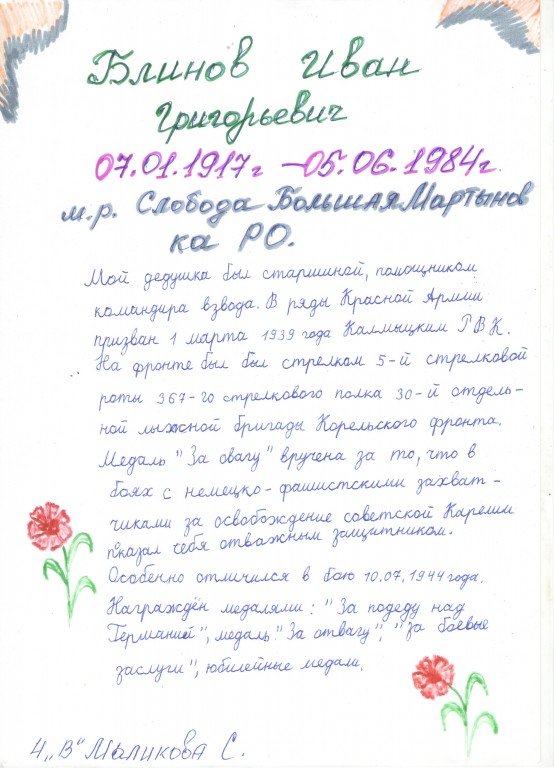 Блинов Иван
Григорьевич
07.01.1917г – 05.06.1984г.
м.р. Слобода Большая Мартынов
ка РО.
Мой дедушка был старшиной, помощником
командира взвода. В ряды Красной Армии
призван 1 марта 1939 года Калмыцким РВК.
На фронте был был стрелком 5-й стрелковой
роты 367-го стрелкового полка 30-й отдель-
ной лыжной бригады Корельского фронта.
Медаль "За овагу" вручена за то, что в
боях с немецко-фашистскими захват-
чиками за освобождение советской Карелии
показал себя отважным защитником.
Особенно отличился в бою 10.07.1944 года.
Награждён медалями: "За подеду над
Германией", медаль "За отвагу", "За боевые
заслуги", юбилейные медали.
4 „В" Маликова С.